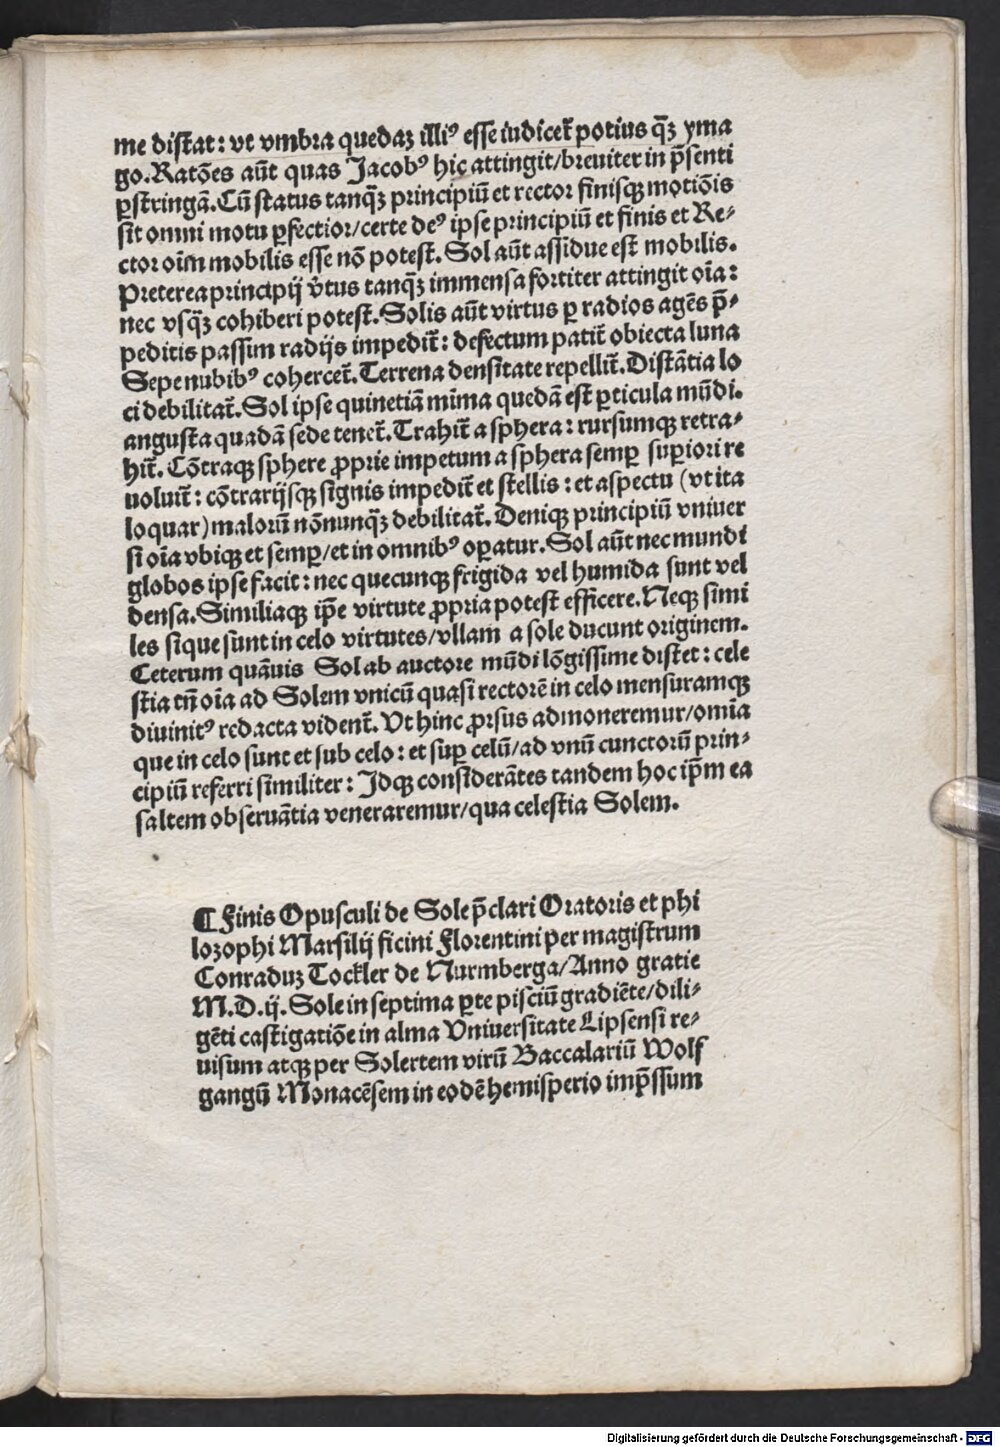 me distat: vt vmbra quedaꝫ illiꝰ esse iudicet᷑ potius qꝫ̄ yma
go. Ratōes aūt quas Jacobꝰ hic attingit/breuiter in p̄senti
ꝑstringā. Cū status tanqꝫ̄ principiū et rector finisqꝫ motiōis
sit omni motu ꝑfectior/certe deꝰ ipse principiū et finis et Re⸗
ctor oīm mobilis esse nō potest. Sol aūt assidue est mobilis.
Preterea principij v̄tus tanqꝫ̄ immensa fortiter attingit oīa:
nec vsqꝫ̄ cohiberi potest. Solis aūt virtus ꝑ radios agēs p̄⸗
peditis passim radijs impedit᷑: defectum patit᷑ obiecta luna
Sepe nubibꝰ cohercet᷑. Terrena densitate repellit᷑. Distātia lo
ci debilitat᷑. Sol ipse quinetiā mīma quedā est ꝑticula mūdi.
angusta quadā sede tenet᷑. Trahit᷑ a sphera: rursumqꝫ retra⸗
hit᷑. Cōtraqꝫ sphere ꝓprie impetum a sphera semꝑ suꝑiori re
uoluit᷑: cōtrarijsqꝫ signis impedit᷑ et stellis: et aspectu (vt ita
loquar) malorū nōnunqꝫ̄ debilitat᷑. Deniqꝫ principiū vniuer
si oīa vbiqꝫ et semꝑ/et in omnibꝰ oꝑatur. Sol aūt nec mundi
globos ipse facit: nec quecunqꝫ frigida vel humida sunt vel
densa. Similiaqꝫ ip̄e virtute ꝓpria potest efficere. Neqꝫ simi
les si que sunt in celo virtutes/vllam a sole ducunt originem.
Ceterum quāuis Sol ab auctore mūdi lōgissime distet: cele
stia tn̄ oīa ad Solem vnicū quasi rectorē in celo mensuramqꝫ
diuinitꝰ redacta vident᷑. Vt hinc ꝓrsus admoneremur/omīa
que in celo sunt et sub celo: et suꝑ celū/ad vnū cunctorū prin⸗
cipiū referri similiter: Jdqꝫ considerātes tandem hoc ip̄m ea
saltem obseruātia veneraremur/qua celestia Solem.
¶ Finis Opusculi de Sole p̄clari Oratoris et phi
lozophi Marsilij ficini Florentini per magistrum
Conraduꝫ Tockler de Nurmberga/Anno gratie
M.D.ij. Sole in septima ꝑte pisciū gradiēte/dili⸗
gēti castigatiōe in alma Vniuersitate Lipsensi re⸗
uisum atqꝫ per Solertem virū Baccalariū Wolf
gangū Monacēsem in eodē hemisperio imp̄ssum
Digitalisierung gefördert durch die Deutsche Forschungsgemeinschaft - DFG